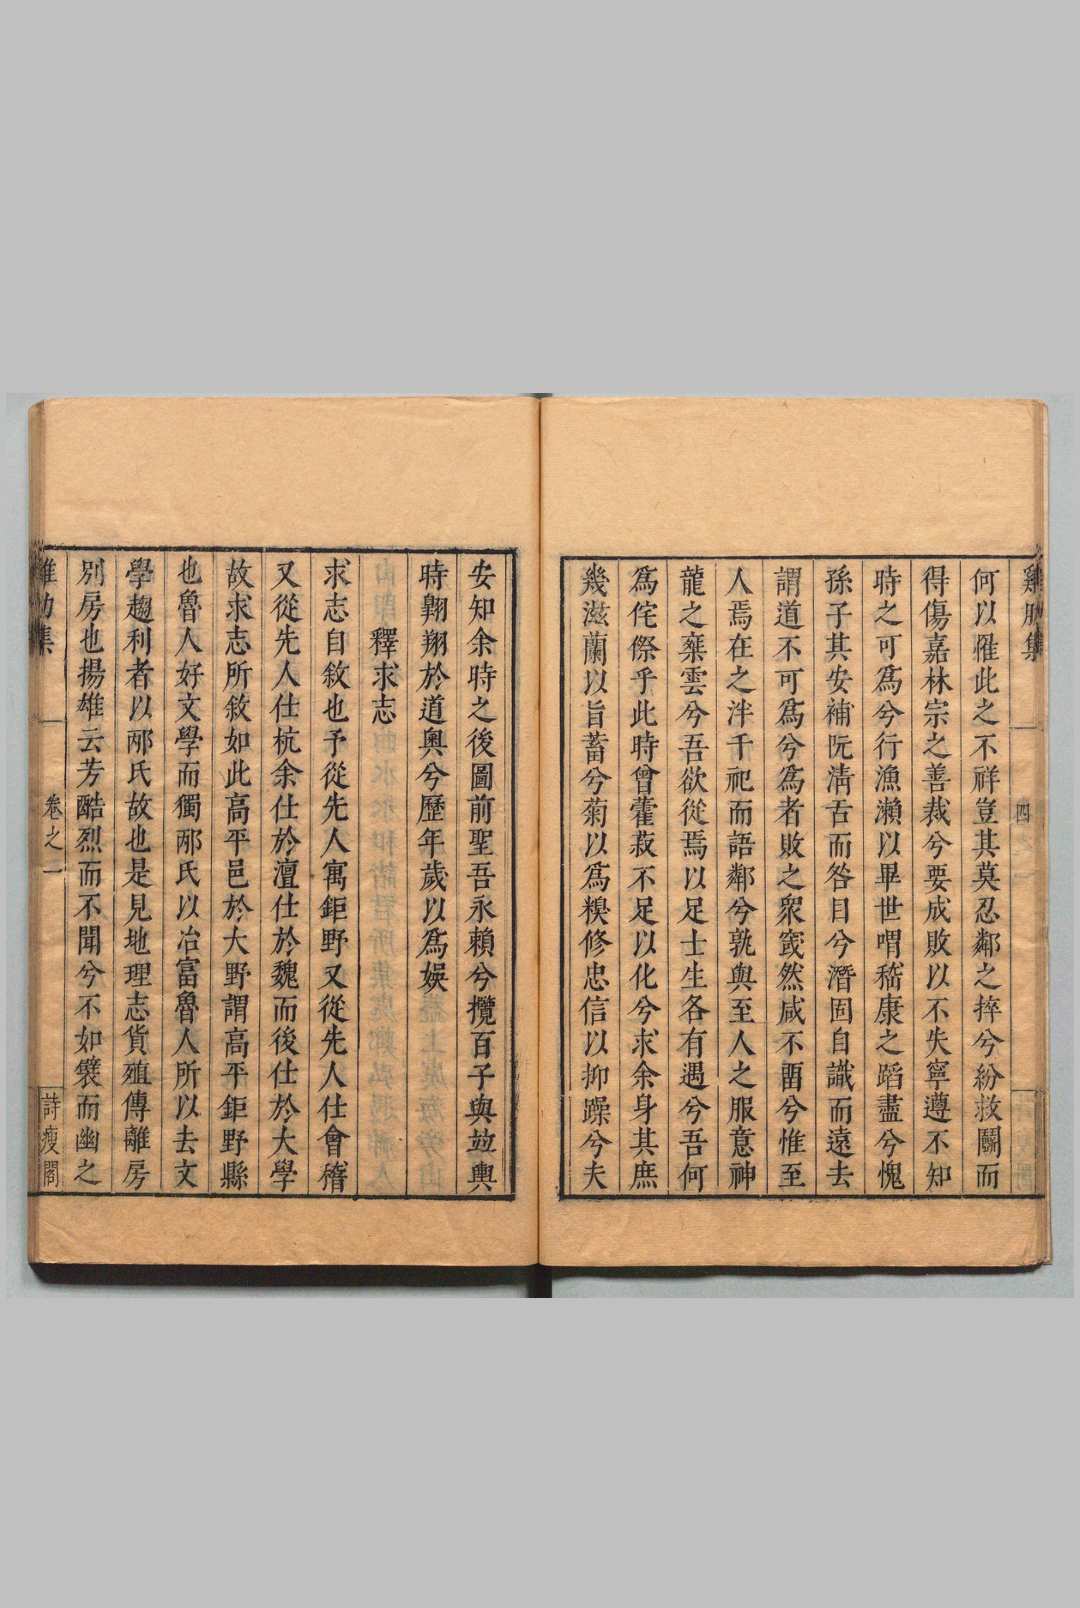 何以罹此之不祥豈其莫忍鄰之捽兮紛救鬭而
得傷嘉林宗之善裁兮要成敗以不失寧遵不知
時之可爲兮行漁瀨以畢世喟嵇康之蹈盡兮愧
孫子其安補阮淸舌而咎目兮潛固自識而遠去
謂道不可爲兮爲者敗之衆竅然咸不畱兮惟至
人焉在之泮千祀而語鄰兮孰與至人之服意神
龍之椉雲兮吾欲從焉以足士生各有遇兮吾何
爲侘傺乎此時曾藿菽不足以化兮求余身其庶
幾滋蘭以旨蓄兮菊以爲糗修忠信以抑躁兮夫
安知余時之後圖前聖吾永賴兮攬百子與竝輿
時翺翔於道奧兮歷年歲以爲娛
釋求志
求志自敘也予從先人寓鉅野又從先人仕會稽
又從先人仕杭余仕於澶仕於魏而後仕於大學
故求志所敘如此高平邑於大野謂高平鉅野縣
也魯人好文學而獨邴氏以冶富魯人所以去文
學趨利者以邴氏故也是見地理志貨殖傳離房
別房也揚雄云芳酷烈而不聞兮不如襞而幽之
雞肋集 卷之二 詩瘦閣